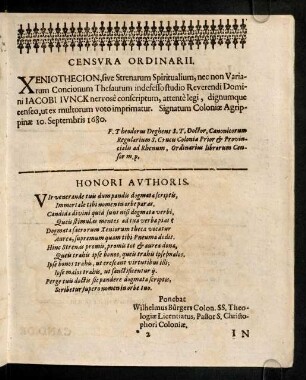 CENSVRA ORDINARII.
XENIOTHECION, sive Strenarum Spiritualium, nec non Varia-
rum Concionum Thesaurum indefesso studio Reverendi Domi-
ni IACOBI IVNCK nervosè conscriptum, attentè legi, dignumque
censeo, ut ex multorum voto imprimatur. Signatum Coloniæ Agrip-
pinæ 10. Septembris 1680.
F. Theodorus Deghens S. T. Doctor, Canonicorum
Regularium S. Crucis Coloniæ Prior & Provin-
cialis ad Rhenum, Ordinarius librorum Cen-
sor m. p.
HONORI AVTHORIS.
VIr venerande tuis dum pandis dogmata scriptis,
Immortale tibi nomen in orbe paras,
Candida divini quia sunt nisi dogmata verbi,
Queis stimulas mentes ad tua verba pias?
Dogmata sacrorum Xeniorum theca vocatur
Aurea, supremum quam tibi Pneuma dedit.
Hinc Strenas promis, promis tot & aurea dona,
Queis trahis ipse bonos, queis trahis ipse malos,
Ipse bonos trahis, ut crescant virtutibus illi;
Ipse malos trahis, ut sanctificentur ij.
Perge tuis doctis sic pandere dogmata scriptis,
Scribetur supero nomen in orbe tuo.
Ponebat
Wilhelmus Bürgers Colon. SS, Theo-
logiæ Licentiatus, Pastor S, Christo-
phori Coloniæ,
2 IN